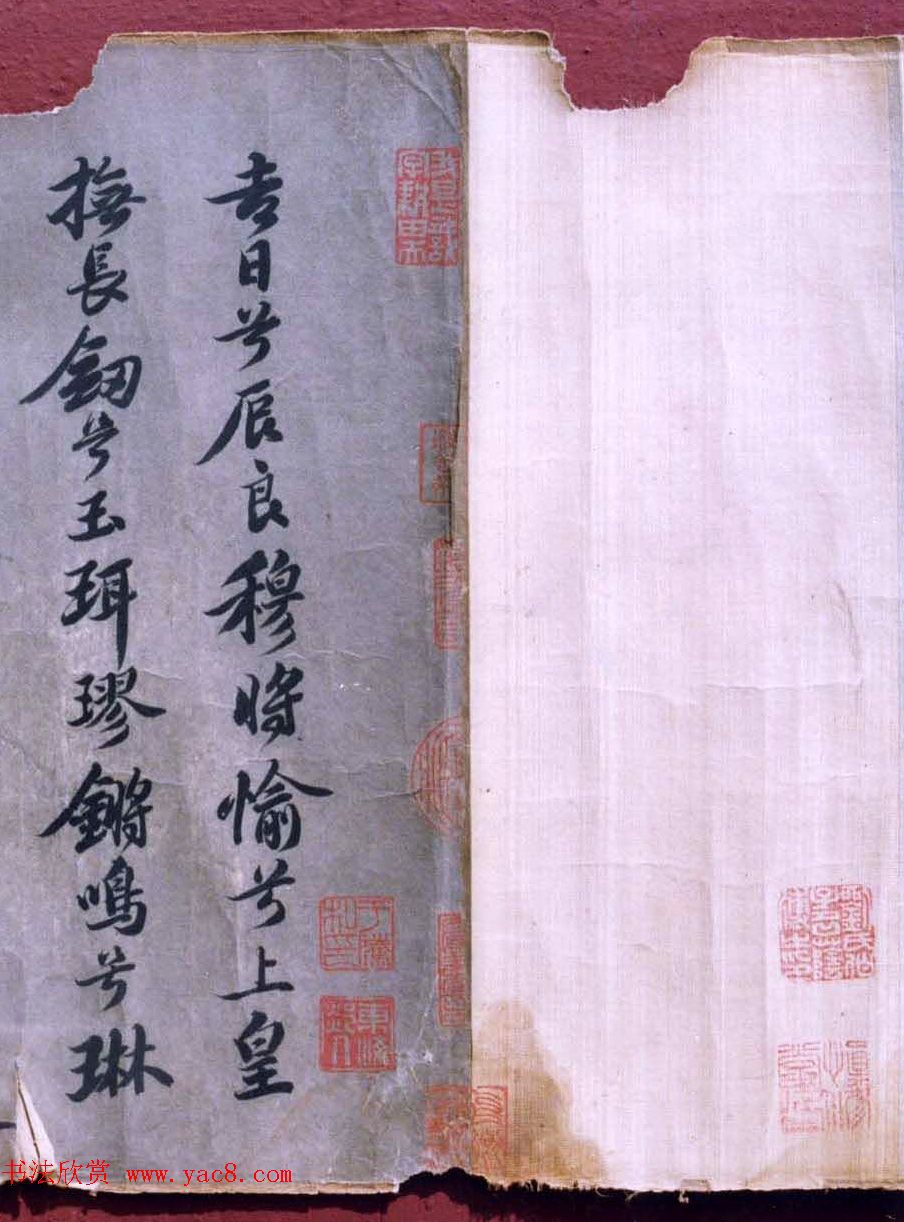 吉日兮辰良穆將愉兮上皇
撫長劒兮玉珥璆鏘鳴兮琳
书法欣赏 www.yac8.com